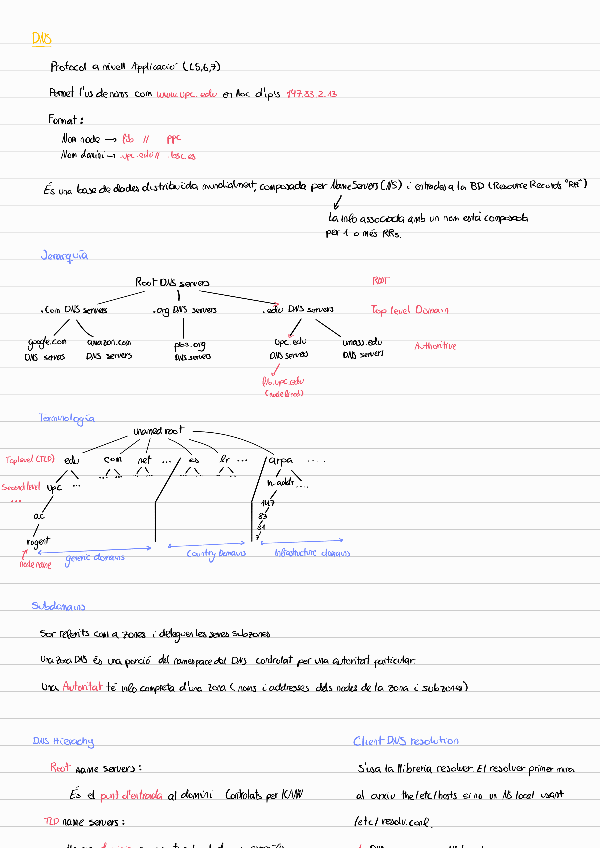 DNS
Protocol a nivell Applicació (L5,6,7)
Permet l'us de noms com www.upc.edu en lloc d'ip's 147.83.2.13
Format:
Nom node → fib // ppc
Nom domini → upc.edu // bsc.es
És una base de dades distribuida mundialment, composada per NameServers (NS) i entrades a la BD (Resource Records "RR")
La info associada amb un nom està composada
per 1 o més RRs.
Jerarquia
Root DNS servers ROOT
.com DNS servers .org DNS servers .edu DNS servers Top level Domain
google.com amazon.com pbs.org upc.edu umass.edu Authoritive
DNS servers DNS servers DNS servers DNS servers DNS servers
fib.upc.edu
Terminologia
unamed root
Top level (TLD) edu com net ... es fr ... arpa ....
Second level upc ... in-addr ...
... 147
ac 83
rogent
node name generic domains Country Domains Infrastructure domains
Subdomains
Son referits com a zones i deleguen les seves subzones
Una zona DNS és una porció del namespace del DNS controlat per una autoritat particular.
Una Autoritat té info completa d'una zona (noms i addresses dels nodes de la zona i subzones)
DNS Hierachy
Root name servers:
És el punt d'entrada al domini Controlats per ICANN
TLD name servers:
Client DNS resolution
S'usa la llibreria resolver. El resolver primer mira
al arxiu the/etc/hosts si no un NS local usant
/etc/resolv.conf.